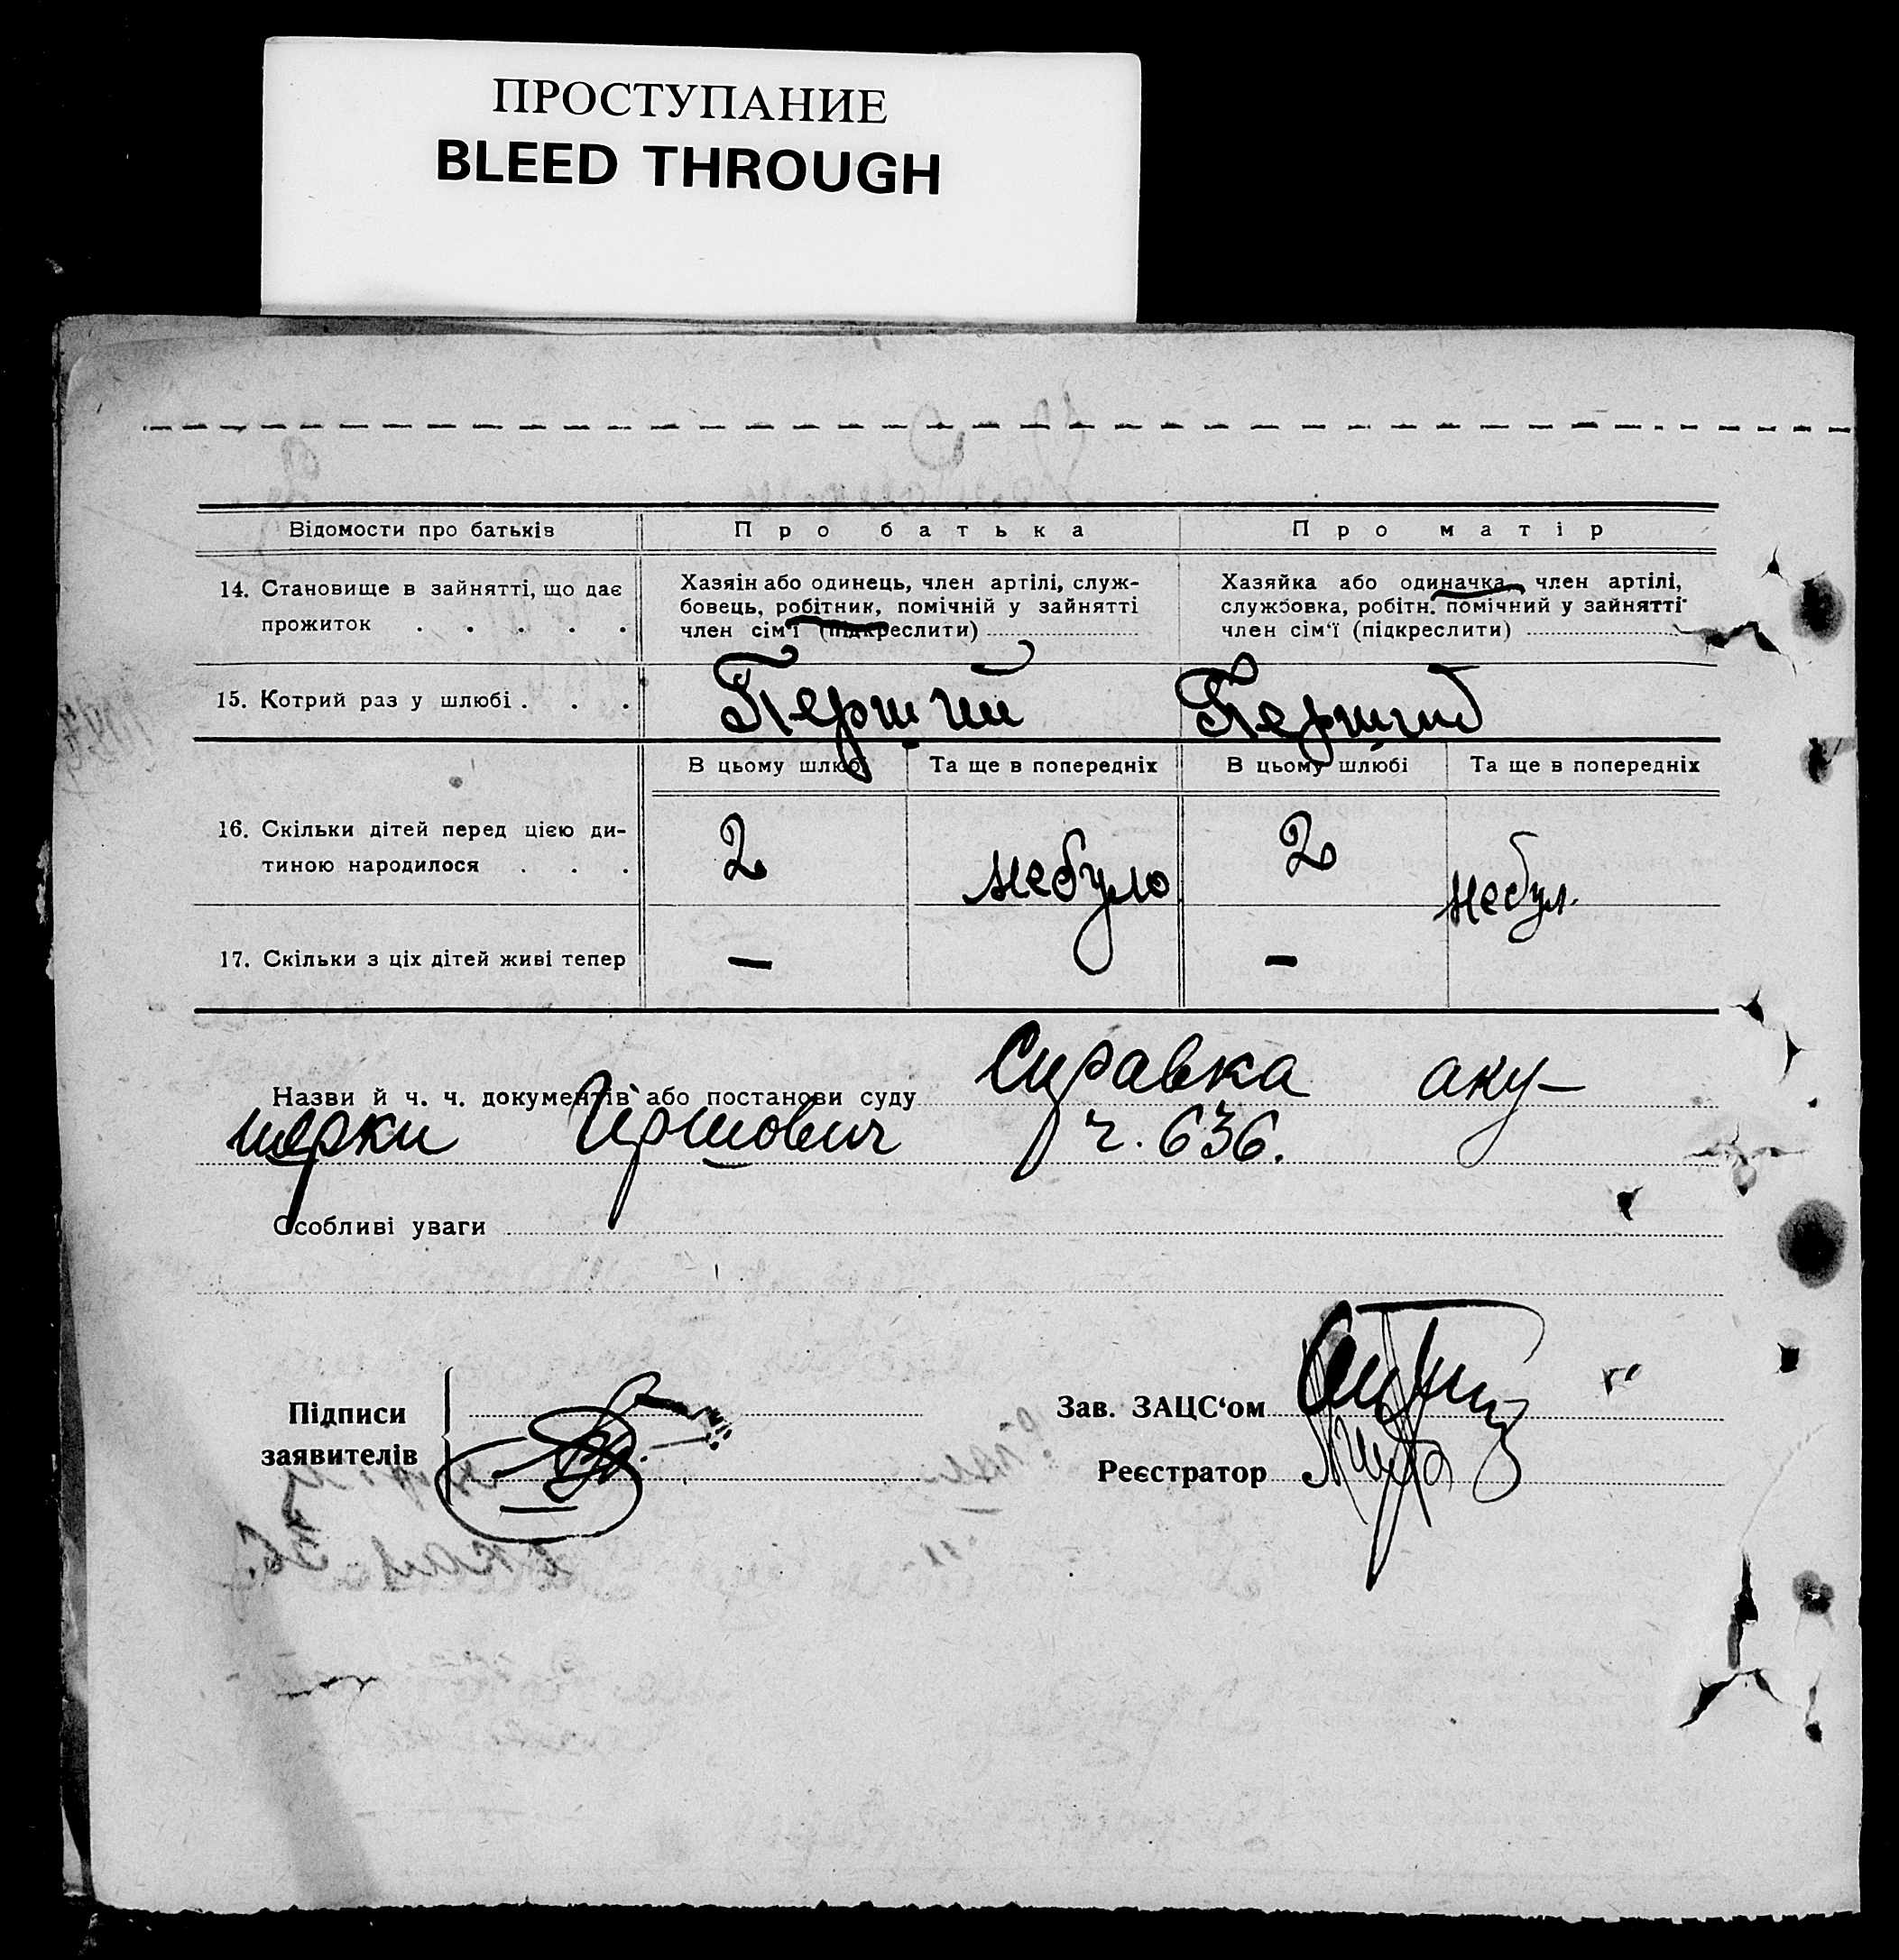 ПРОСТУПАНИЕ
BLEED THROUGH
Відомости про батьків
Про батька
Про матір
14. Становище в зайнятті, що дає
прожиток . . . . .
Хазяін або одинець, член артілі, служ-
бовець, робітник, помічній у зайнятті
член сім'ї (підкреслити)
Хазяйка або одиначка, член артілі,
службовка, робітн. помічний у зайнятті
член сім'ї (підкреслити)
15. Котрий раз у шлюбі . . .
Перший
Перший
В цьому шлюбі
Та ще в попередніх
В цьому шлюбі
Та ще в попередніх
16. Скільки дітей перед цією ди-
тиною народилося . . .
2
небуло
2
небул.
17. Скільки з ціх дітей живі тепер
—
—
Назви й ч. ч. документів або постанови суду Справка аку-
шерки Гіршович ч. 636.
Особливі уваги
Підписи
заявителів
Зав. ЗАЦС'ом
Реєстратор